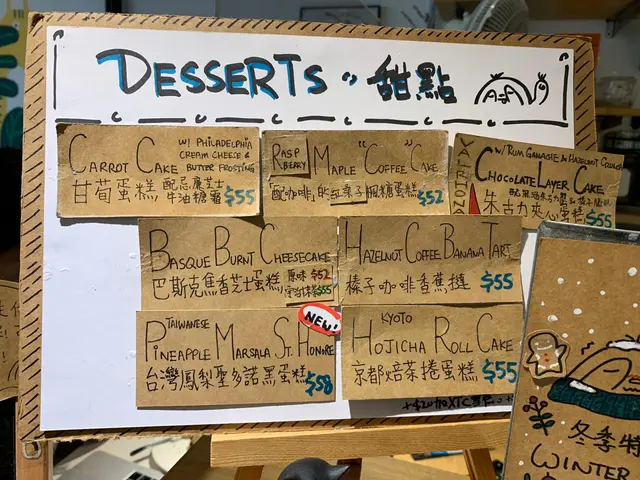 DESSERTS 甜點
CARROT CAKE
W/ PHILADELPHIA
CREAM CHEESE &
BUTTER FROSTING
甘荀蛋糕 配忌廉芝士
牛油糖霜 $55
RASPBERRY MAPLE "COFFEE" CAKE
配咖啡的紅桑子楓糖蛋糕 $52
W/ RUM GANACHE & HAZELNUT
CHOCOLATE LAYER CAKE
朱古力夾心蛋糕 $55
BASQUE BURNT CHEESECAKE
巴斯克焦香芝士蛋糕 原味 $52
$55
HAZELNUT COFFEE BANANA TART
榛子咖啡香蕉撻 $55
NEW!
TAIWANESE
PINEAPPLE MARSALA ST. HONORE
台灣鳳梨聖多諾黑蛋糕 $58
KYOTO
HOJICHA ROLL CAKE
京都焙茶捲蛋糕 $55
冬季特
WINTER